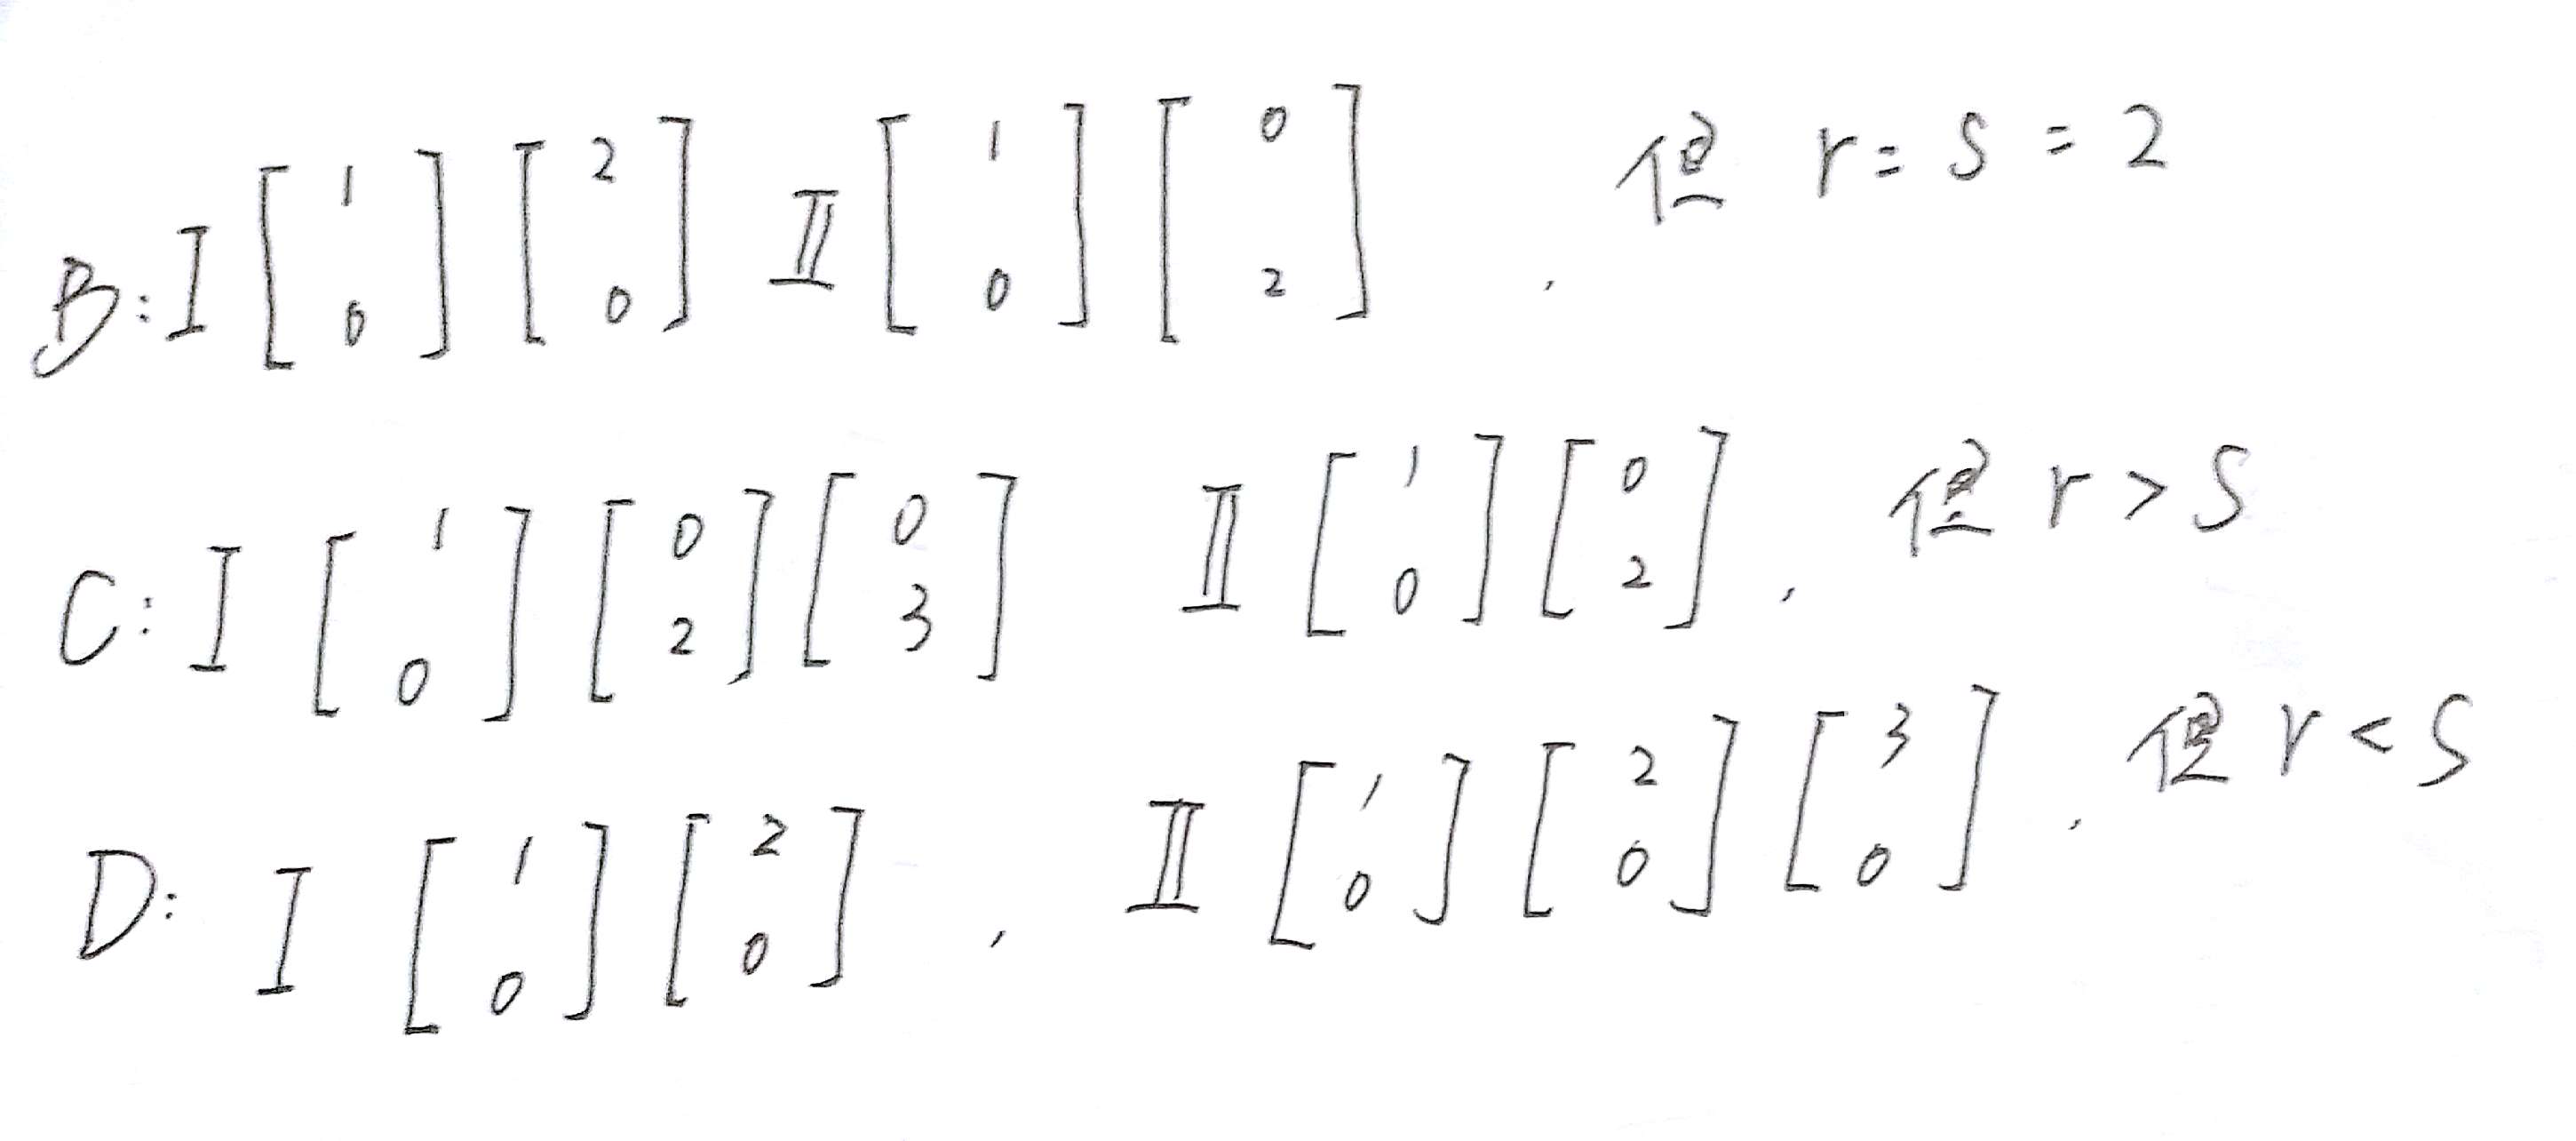 B: I [1 0] [2 0] II [1 0] [0 2] , 但 r = s = 2
C: I [1 0] [0 2] [0 3] II [1 0] [0 2] , 但 r > s
D: I [1 0] [2 0] , II [1 0] [2 0] [3 0] , 但 r < s